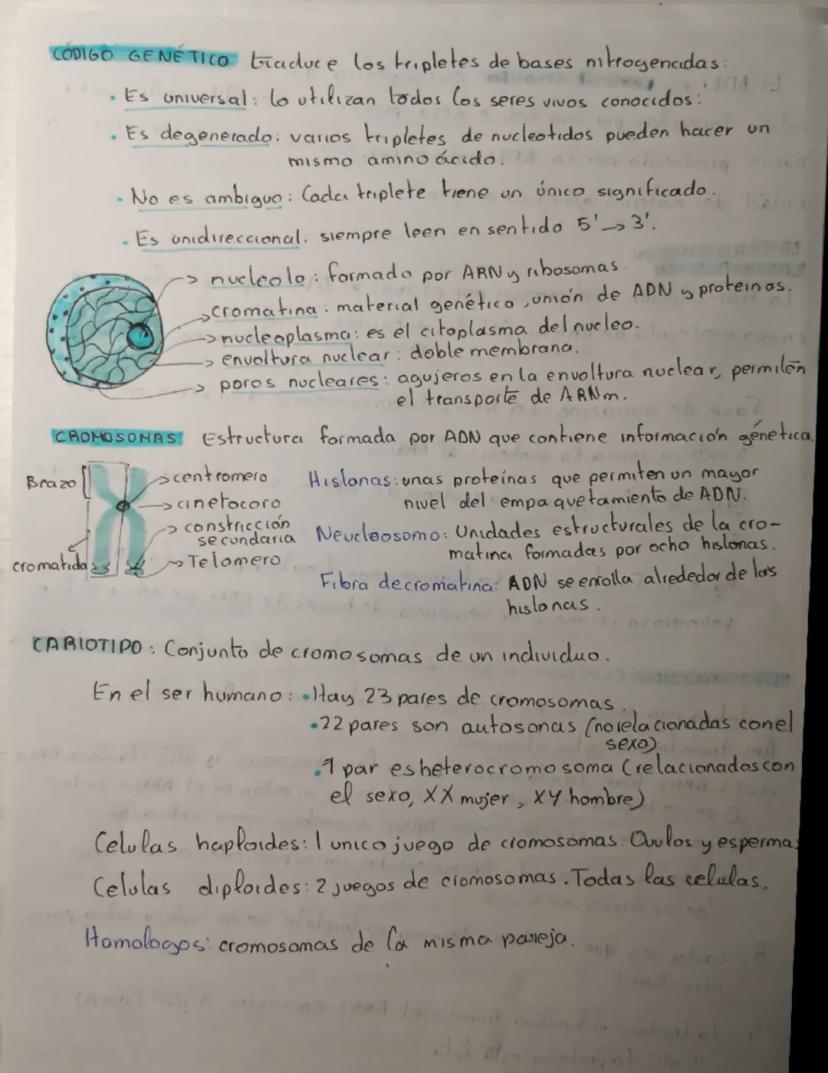 CÓDIGO GENÉTICO traduce los tripletes de bases nitrogenadas:
• Es universal: lo utilizan todos los seres vivos conocidos:
• Es degenerado: varios tripletes de nucleotidos pueden hacer un
mismo aminoácido.
• No es ambiguo: Cada triplete tiene un único significado.
• Es unidireccional. siempre leen en sentido 5' → 3'.
→ nucleolo: formado por ARN y ribosomas
→ cromatina: material genético, unión de ADN y proteinas.
→ nucleoplasma: es el citoplasma del nucleo.
→ envoltura nuclear: doble membrana.
→ poros nucleares: agujeros en la envoltura nuclear, permiten
el transporte de ARNm.
CROMOSOMAS Estructura formada por ADN que contiene información génetica
Brazo
→ centromero
→ cinetocoro
→ constricción
secundaria
→ Telomero
cromatidas
Histonas: unas proteínas que permiten un mayor
nivel del empaquetamiento de ADN.
Neucleosomo: Unidades estructurales de la cro-
matina formadas por ocho histonas.
Fibra de cromatina: ADN se enrolla alrededor de las
histonas.
CARIOTIPO: Conjunto de cromosomas de un individuo.
En el ser humano: • Hay 23 pares de cromosomas.
• 22 pares son autosonas (no relacionadas con el
sexo)
• 1 par es heterocromosoma (relacionados con
el sexo, XX mujer, XY hombre)
Celulas haploides: 1 unico juego de cromosomas. Ovulos y espermas
Celulas diploides: 2 juegos de cromosomas. Todas las celulas.
Homologos: cromosomas de la misma pareja.